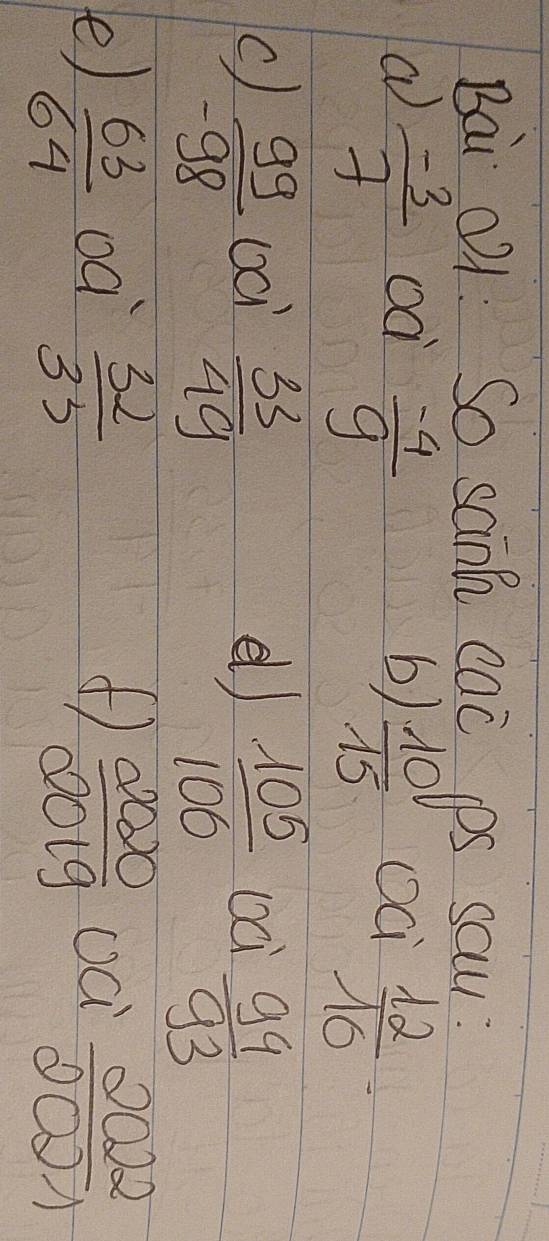 Bài 21: So sánh các ps sau:
a) -3/7 và -4/9 b) 10/15 và 12/16
c) 99/-98 và 33/49 d) 105/106 và 94/93
e) 63/64 và 32/33 f) 2020/2019 và 2022/2021